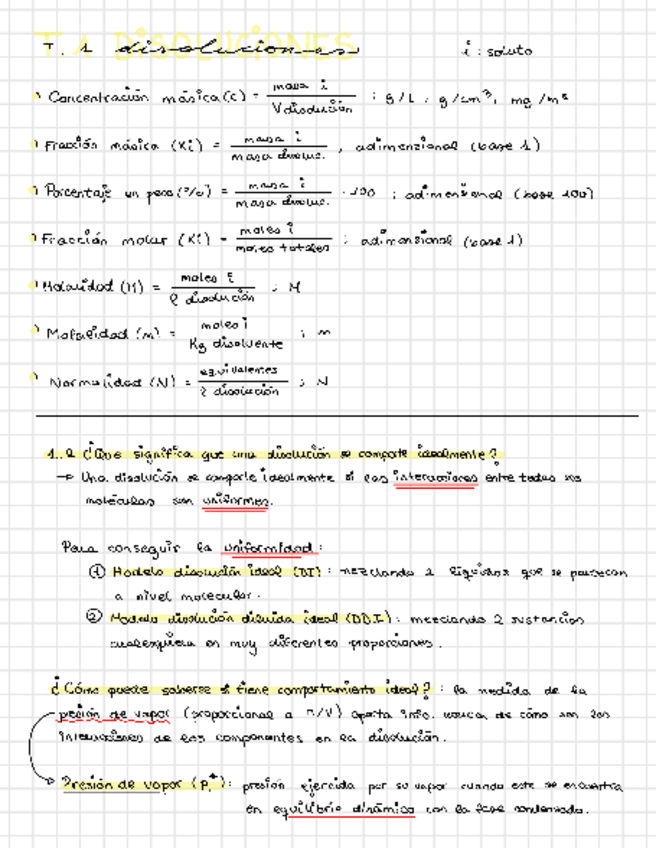 T. 1 disoluciones i: soluto
Concentración másica (c) = masa i / V disolución ; g/L, g/cm³, mg/m³
Fracción másica (Xi) = masa i / masa disoluc. , adimensional (base 1)
Porcentaje en peso (%) = masa i / masa disoluc. · 100 ; adimensional (base 100)
Fracción molar (Xi) = moles i / moles totales ; adimensional (base 1)
Molaridad (M) = moles i / l disolución ; M
Molalidad (m) = moles i / Kg disolvente ; m
Normalidad (N) = equivalentes / l disolución ; N
1.2 ¿Que significa que una disolución se comporte idealmente?
→ Una disolución se comporte idealmente si las interacciones entre todas sus
moléculas son uniformes.
Para conseguir la uniformidad:
① Modelo disolución ideal (DI): mezclando 2 líquidos que se parezcan
a nivel molecular.
② Modelo disolución diluida ideal (DDI): mezclando 2 sustancias
cualesquiera en muy diferentes proporciones.
¿Cómo puede saberse si tiene comportamiento ideal?: la medida de la
presión de vapor (proporcional a n/V) aporta info. acerca de cómo son las
interacciones de los componentes en la disolución.
Presión de vapor (P*): presión ejercida por su vapor cuando este se encuentra
en equilibrio dinámico con la fase condensada.